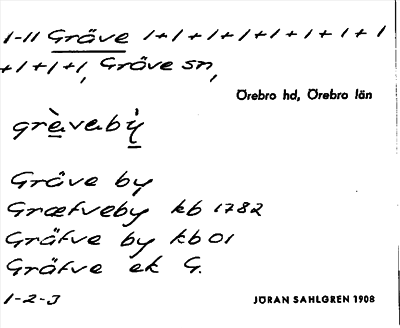 1-11 Gräve 1+1+1+1+1+1+1+1
+1+1+1, Gräve sn,
Örebro hd, Örebro län
grè̱vabỳ̱
Gräve by
Græfveby kb 1782
Gräfve by kb 01
Gräfve ek G.
1-2-3
JÖRAN SAHLGREN 1908